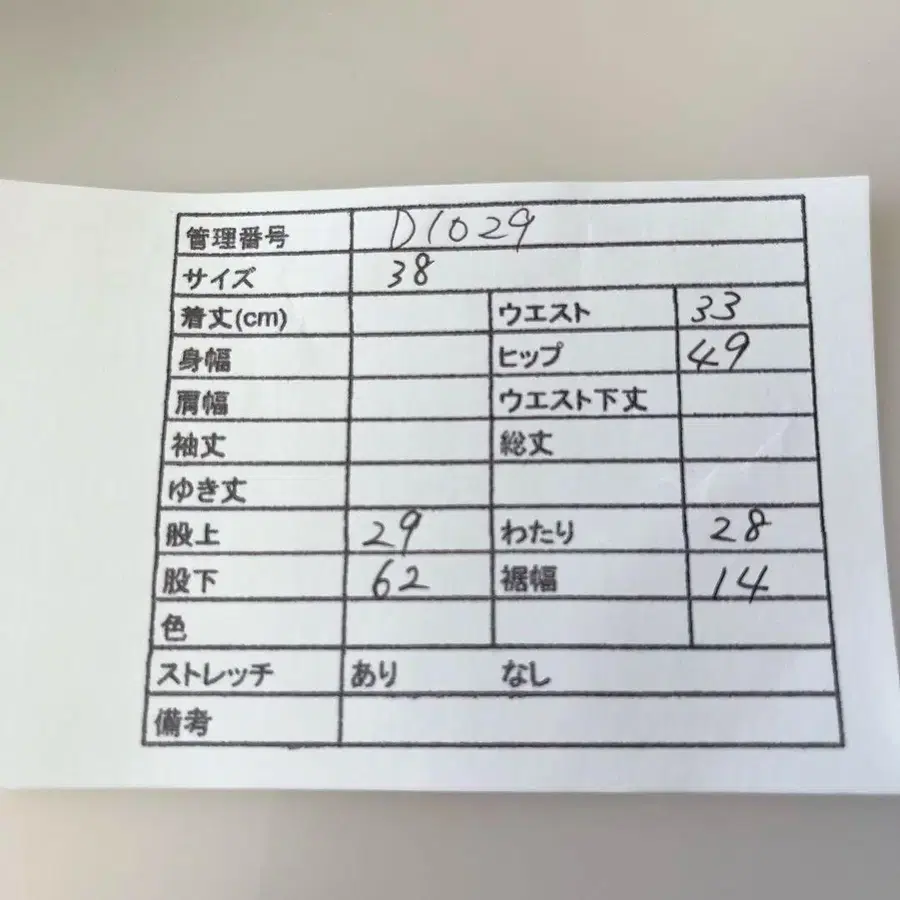 管理番号 D1029
サイズ 38
着丈(cm) ウエスト 33
身幅 ヒップ 49
肩幅 ウエスト下丈
袖丈 総丈
ゆき丈
股上 29 わたり 28
股下 62 裾幅 14
色
ストレッチ あり なし
備考